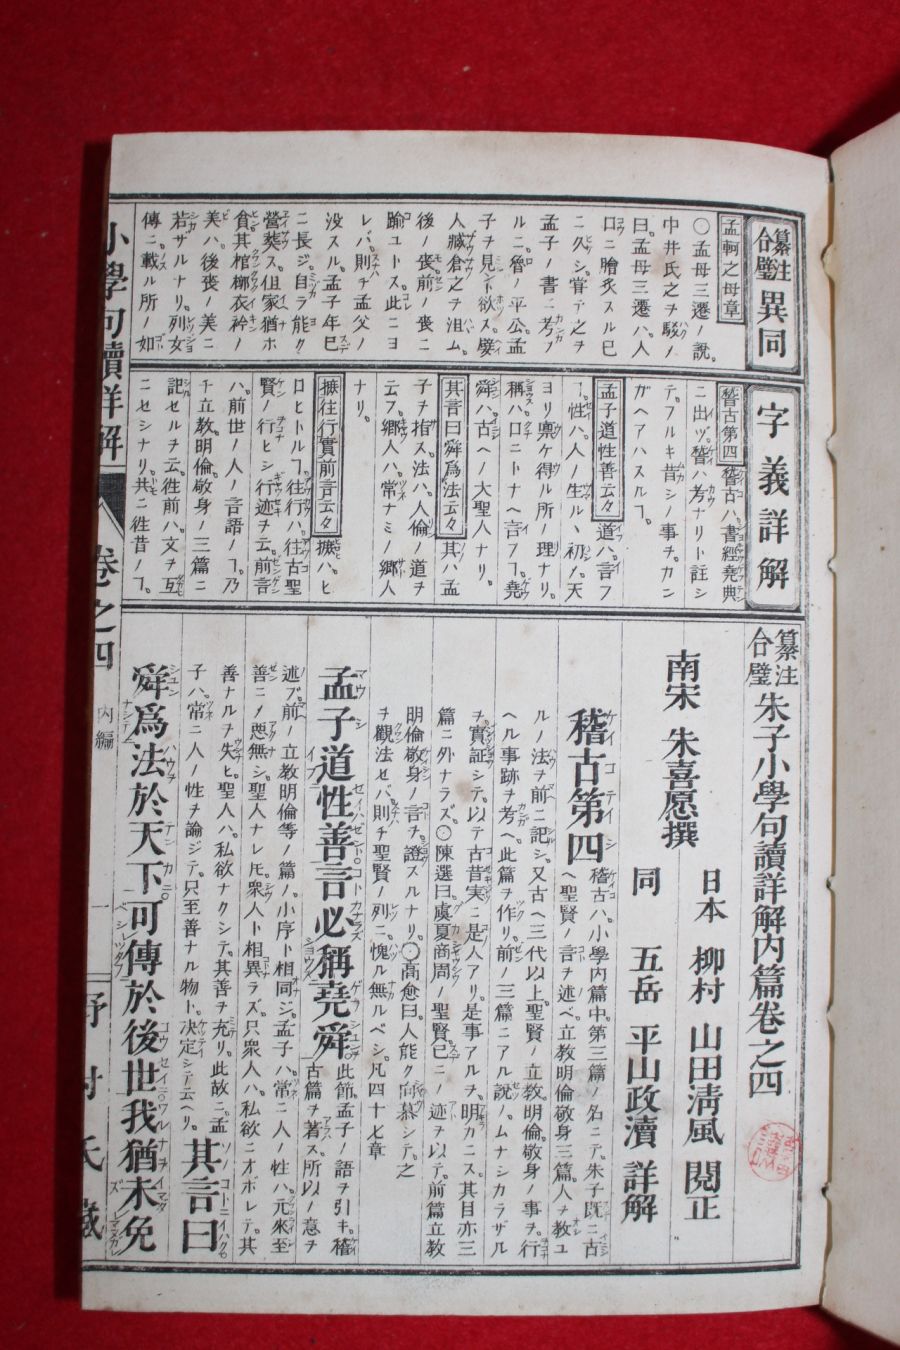 纂注合璧異同
孟軻之母章
〇孟母三遷ノ説
中井氏之ヲ駁ノ
曰。孟母三遷ハ。人
口ニ膾炙スル巳
ニ久シ。嘗テ之ヲ
孟子ノ書ニ考フ
ルニ。魯ノ平公。孟
子ヲ見ント欲ス。嬖
人臧倉之ヲ沮ム。
後ノ喪前ノ喪ニ
踰ユトス。此ニヨ
レバ。則チ孟父ノ
没スル。孟子年巳
ニ長ジ。自ラ能ク
營葬ス。但家猶ホ
貧。其棺槨衣衾ノ
美ハ。後喪ノ美ニ
若ザルナリ。列女
傳ニ載ル所ノ如
字義詳解
稽古第四 稽古ハ。書經堯典
ニ出ヅ。稽ハ考ナリト註シ
テ。フルキ昔シノ事ヲ。カン
ガヘアハスルヿ。
孟子道性善云々 道ハ。言フ
ヿ。性ハ。人ノ生ルヽ初ノ。天
ヨリ稟ケ得ル所ノ理ナリ。
稱ハ。口ニトナヘ言フヿ。堯
舜ハ。古ヘノ大聖人ナリ。
其言曰舜爲法云々 其ハ。孟
子ヲ指ス。法ハ。人倫ノ道ヲ
云フ。郷人ハ。常ナミノ郷人
ナリ。
摭往行實前言云々 摭ハ。ヒ
ロヒトルヿ。往行ハ。往古聖
賢ノ行ヒシ行迹ヲ云。前言
ハ。前世ノ人ノ言語ノヿ。乃
チ立教。明倫。敬身ノ三篇ニ
記セルヲ云。徃前ハ。文ヲ互
ニセシナリ。共ニ徃昔ノヿ。
纂注合璧朱子小學句讀詳解内篇卷之四
南宋 朱喜愿撰
日本 柳村 山田淸風 閲正
同 五岳 平山政瀆 詳解
稽古第四 稽古ハ。小學内篇中。第三篇ノ名ニテ。朱子既ニ古
ヘ聖賢ノ言ヲ述ベ。立教明倫敬身三篇。人ヲ教ユ
ルノ法ヲ。前ニ記シ。又古ヘ三代以上。聖賢ノ立教。明倫。敬身ノ事ヲ。行
ヘル事跡ヲ考ヘ。此篇ヲ作リ。前ノ三篇ニアル説ノ。ムナシカラザル
ヲ。實証シテ。以テ古昔實ニ是人アリ。是事アルヲ。明カニス。其目亦三
篇ニ外ナラズ。〇陳選曰。虞夏商周ノ聖賢。巳ニノ迹ヲ以テ。前篇立教
明倫敬身ノ言ヲ證スルナリ。〇高愈曰。人能ク。仰慕シテ。之
ヲ觀法セバ。則チ聖賢ノ列ニ愧ル無ルベシ。凡四十七章
孟子道性善言必稱堯舜 此節。孟子ノ語ヲ引キ。稽
古篇ヲ著ス。所以ノ意ヲ
述ブ。前ノ立教明倫等ノ篇ノ。小序ト相同ジ。孟子ハ。常ニ人ノ性ハ。元來至
善ニノ惡無シ。聖人ナレ𪜈。衆人ト相異ラズ。只衆人ハ。私欲ニオボレテ。其
善ナルヲ失ヒ。聖人ハ。私欲ナクシテ。其善ヲ充リ。此故ニ。孟
子ハ。常ニ人ノ性ヲ論ジテ。只至善ナル物ト。決定シ玉ヘリ。 其言曰
舜爲法於天下可傳於後世我猶未免
小學句讀詳解
卷之四 内編
野村氏藏